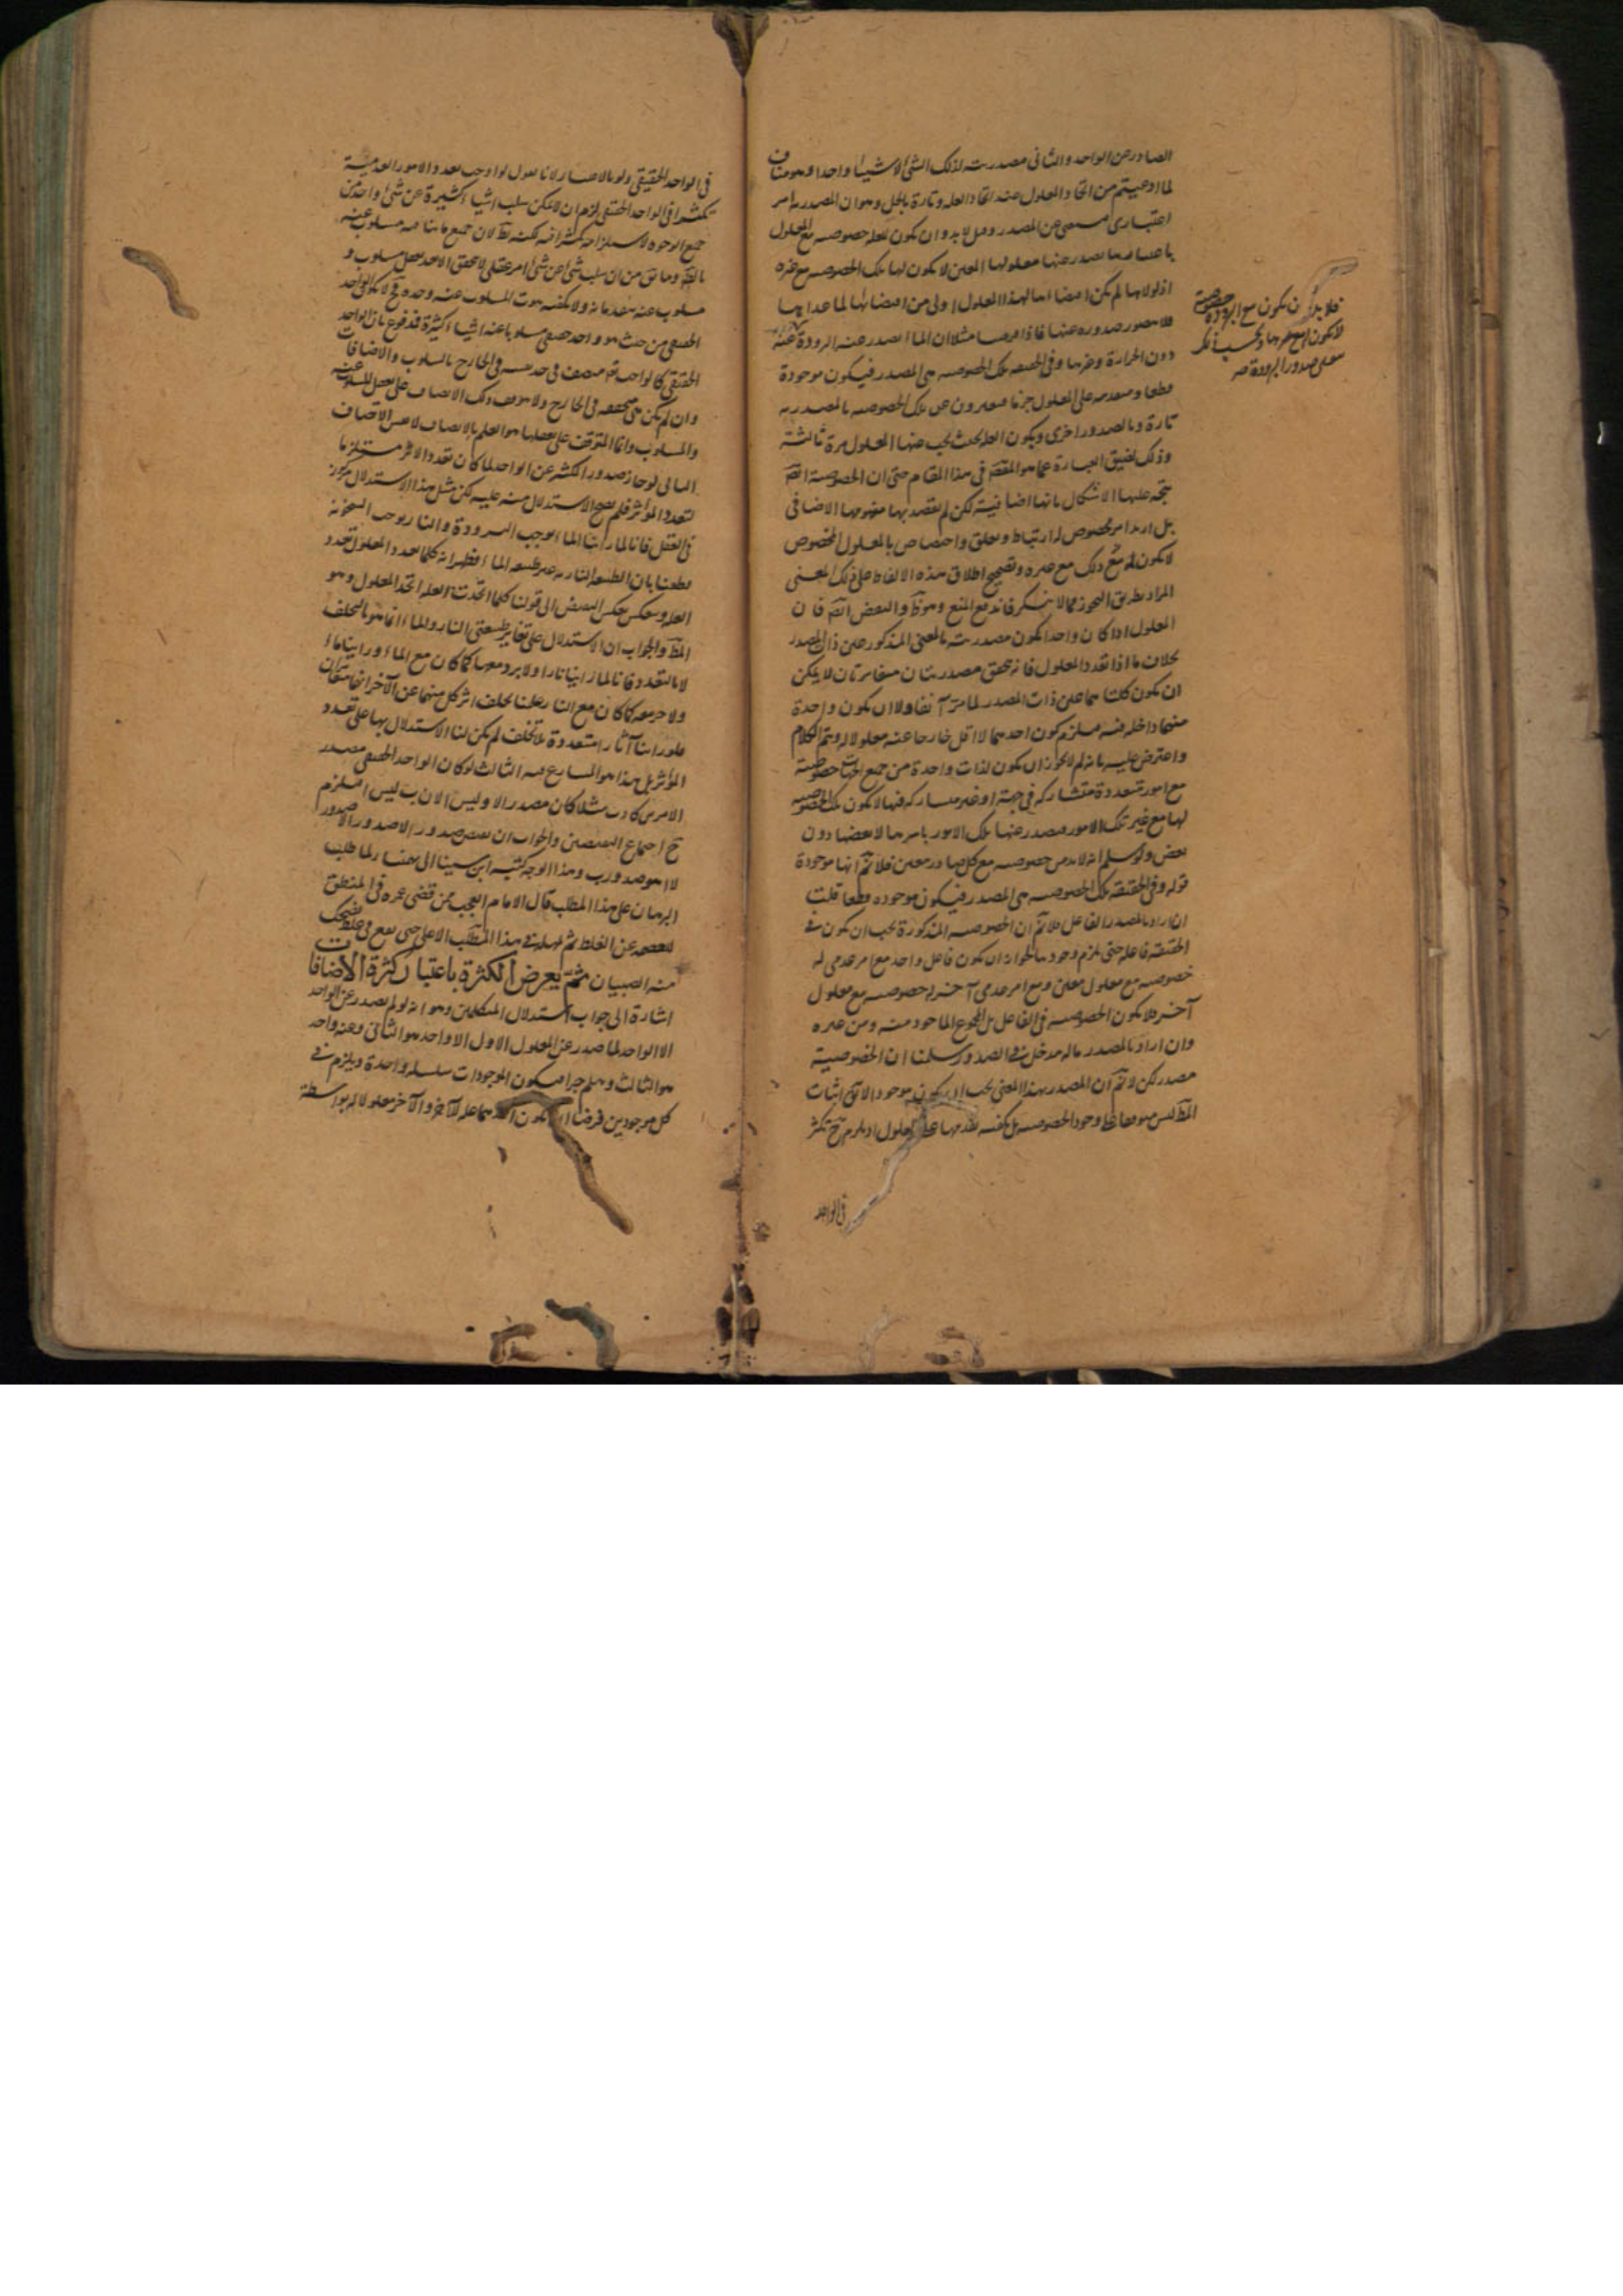 الصادر عن الواحد والثانى مصدريته لذلك الشئ لا شيئا واحدا وهو مناف
لما ادعيتم من اتحاد المعلول عند اتحاد العلة وتارة بالحل وهو ان المصدرية امر
اعتبارى عن المصدر لا بد وان يكون للعلة خصوصية مع المعلول
باعتبارها يصدر عنها معلولها المعين لا يكون لها تلك الخصوصية مع غيره
اذ لولاها لم يكن اقتضاءها لهذا المعلول اولى من اقتضائها لما عداها
فلا يتصور صدوره عنها فاذا مثلا ان الماء يصدر عنه البرودة
فلا بد ان يكون مع البرودة خصوصية
لا يكون له مع غيرها وبحسب ذلك
صدور البرودة
دون الحرارة وغيرها وفى الحقيقة تلك الخصوصية هى المصدر فيكون موجودة
قطعا ومتقدمة على المعلول جزما فيعبرون عن تلك الخصوصية بالمصدرية
تارة وبالصدور اخرى وبكون العلة بحيث يجب عنها المعلول مرة ثالثة
وذلك لضيق العبارة عما هو المقصود فى هذا المقام حتى ان الخصوصية ايضا
يتجه عليها الاشكال بانها اضافية لكن لم نقصد بها مفهومها الاضافى
بل اريد امر مخصوص له ارتباط وتعلق واختصاص بالمعلول المخصوص
لا يكون له ذلك مع غيره وتصحيح اطلاق هذه الالفاظ على ذلك المعنى
المراد بطريق التجوز مما لا ينكر فاندفع المنع وهو ظ والنقض ايضا فان
المعلول اذا كان واحدا يكون مصدريته بالمعنى المذكور عين ذات المصدر
بخلاف ما اذا تعدد المعلول فانه يتحقق مصدريتان متغايرتان لا يمكن
ان يكون كلتاهما عين ذات المصدر لما مر آنفا ولا ان يكون واحدة
منهما داخلة فيه فيلزم كون احديهما لا اقل خارجا عنه معلولا له ويتم الكلام
واعترض عليه بانه لم لا يجوز ان يكون لذات واحدة من جميع الجهات خصوصية
مع امور متعددة متشاركة فى جهة او غير متشاركة فيها لا يكون تلك الخصوصية
لها مع غير تلك الامور فيصدر عنها تلك الامور باسرها لا بعضها دون
بعض ولو سلم انه لا بد من خصوصية مع كل صادر معين فلا نم انها موجودة
قوله وفى الحقيقة تلك الخصوصية هى المصدر فيكون موجودة قطعا قلت
ان اراد بالمصدر الفاعل فلا نم ان الخصوصية المذكورة يجب ان يكون فى
الحقيقة فاعلة حتى يلزم وجودها لجواز ان يكون فاعل واحد مع امر عدمى له
خصوصية مع معلول معين ومع امر عدمى آخر له خصوصية مع معلول
آخر فلا يكون الخصوصية فى الفاعل بل المجموع الماخوذ منه ومن غيره
وان اراد بالمصدر ما له مدخل فى الصدور سلمنا ان الخصوصية
مصدر لكن لا نم ان المصدر بهذا المعنى يجب ان يكون موجودا
ليس موقوفا على وجود الخصوصية بل يكفيه تقدمها على المعلول اذ يلزم ح تكثر
فى الواحد
فى الواحد الحقيقى ولو بالاعتبار لانا نقول لو اوجب تعدد الامور العدمية
تكثرا فى الواحد الحقيقى لزم ان لا يمكن سلب اشياء كثيرة عن شئ واحد من
جميع الوجوه لاستلزامه تكثرا فيه لكنه بط لان جميع ما يباينه مسلوب عنه
بالضرورة وما يق من ان سلب شئ عن شئ امر عقلى لا يتحقق الا بعد تعقل مسلوب و
مسلوب عنه يتقدمانه ولا يكفيه ثبوت المسلوب عنه وحده فح لا يكون الواحد
الحقيقى من حيث هو واحد حقيقى مسلوبا عنه اشياء كثيرة فمدفوع بان الواحد
الحقيقى كالواجب تع متصف فى حد نفسه فى الخارج بالسلوب والاضافات
وان لم يكن هى متحققة فى الخارج ولا يتوقف ذلك الاتصاف على تعقل المسلوب عنه
والمسلوب وانما المتوقف على تعقلها هو العلم بالاتصاف لا نفس الاتصاف
الثانى لو جاز صدور الكثير عن الواحد لما كان تعدد الاثر مستلزما
لتعدد المؤثر فلم يصح الاستدلال منه عليه لكن مثل هذا الاستدلال مركوز
فى العقل فانا لما راينا الماء يوجب البرودة والنار يوجب السخونة
قطعنا بان الطبيعة النارية غير طبيعة الماء فظهر انه كلما تعدد المعلول تعدد
العلة وينعكس بعكس النقيض الى قولنا كلما اتحدت العلة اتحد المعلول وهو
المط والجواب ان الاستدلال على تغاير طبيعتى النار والماء انما هو بالتخلف
لا بالتعدد فانا لما راينا نارا ولا برد معها كما كان مع الماء وراينا ماء
ولا حر معه كما كان مع النار علمنا تخلف اثر كل منهما عن الآخر
فلو راينا آثارا متعددة بلا تخلف لم يكن لنا الاستدلال بها على تعدد
المؤثر بل هذا هو المتنازع فيه الثالث لو كان الواحد الحقيقى مصدر
الامرين كا وب مثلا كان مصدرا لا وليس لان ب ليس ا فيلزم
ح اجتماع النقيضين والجواب ان نقيض صدور ا لا صدور ا لا صدور
لا ا هو صدور ب وهذا الوجه كتبه ابن سينا الى بهمنيار لما طلب
البرهان على هذا المطلب قال الامام العجب ممن قضى عمره فى المنطق
ليعصمه عن الغلط ثم يهمله فى هذا المطلب الاعلى حتى يقع فى غلط يضحك
منه الصبيان ثم يعرض الكثرة باعتبار كثرة الاضافات
اشارة الى جواب استدلال المتكلمين وهو انه لو لم يصدر عن الواحد
الا الواحد لما صدر عن المعلول الاول الا واحد هو الثانى وعنه واحد
هو الثالث وهلم جرا فيكون الموجودات سلسلة واحدة ويلزم فى
كل موجودين فرضا ان يكون احدهما علة للآخر والآخر معلولا له بواسطة